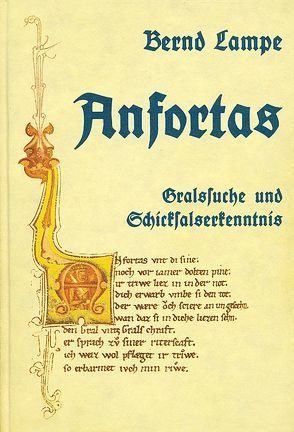 Bernd Lampe
Anfortas
Gralssuche und
Schicksalserkenntnis
Nfortas vnt di sine.
noch vor iamer dolten pine.
ir triwe liez in in der not.
dich erwarb vmbe si den tot.
der were och sciere an
wan daz si in diche liezen sehn.
den bral vntz Grals chraft.
er sprach zv siner riterscaft.
ich weiz wol pflæget ir triwe.
so erbarmet ivch min riwe.